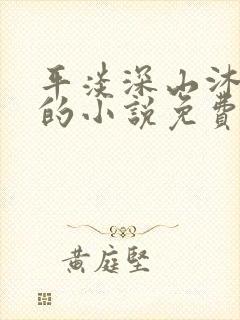 平淡深山沐
的小說免費
黃庭堅